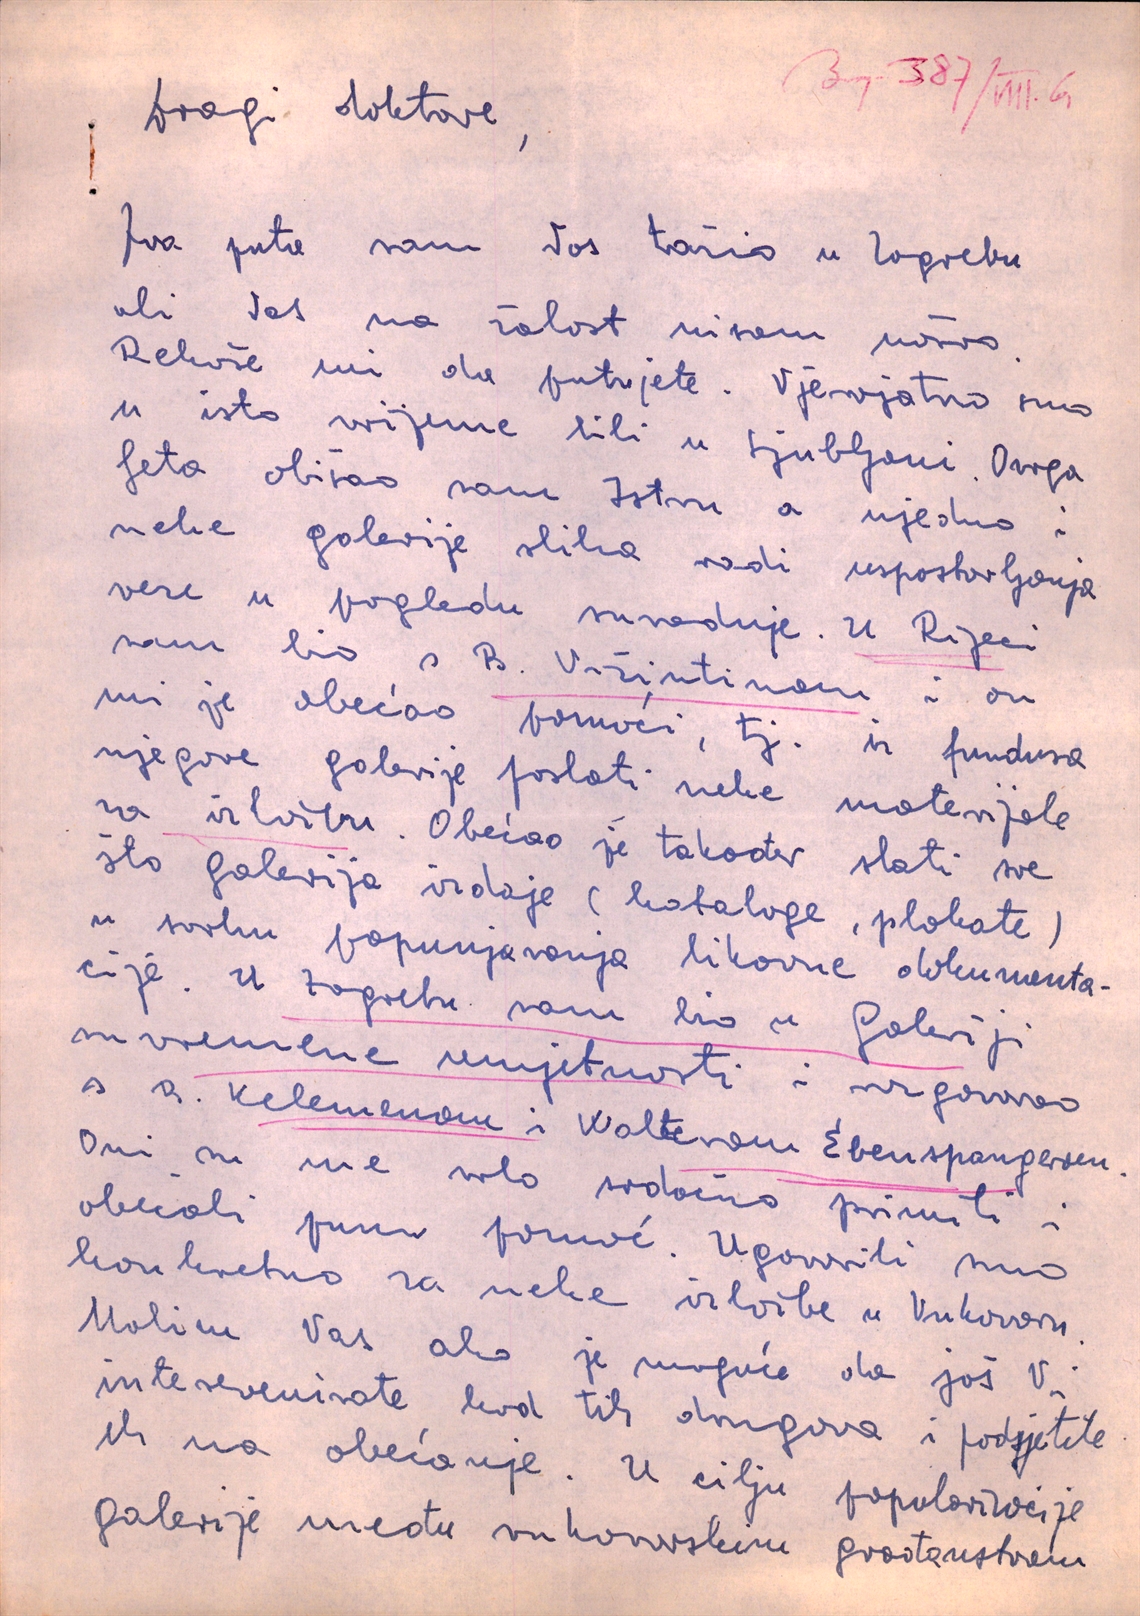 387/VIII. G
Dragi doktore,
Dva puta sam Vas tražio u Zagrebu
ali Vas na žalost nisam našao.
Rekoše mi da putujete. Vjerojatno smo
u isto vrijeme bili u Ljubljani. Ovoga
ljeta obišao sam Istru a ujedno i
neke galerije slika radi uspostavljanja
veze u pogledu suradnje. U Rijeci
sam bio s B. Vižintinom i on
mi je obećao pomoći, tj. iz fundusa
njegove galerije poslati neke materijale
na izložbu. Obećao je također slati sve
što galerija izdaje (kataloge, plakate)
u svrhu popunjavanja likovne dokumenta-
cije. U Zagrebu sam bio u Galeriji
suvremene umjetnosti i razgovarao
s B. Kelemenom i Walterom Ebenspangerom.
Oni su me vrlo srdačno primili i
obećali punu pomoć. Ugovorili smo
konkretno za neke izložbe u Vukovaru.
Molim Vas ako je moguće da još Vi
intervenirate kod tih drugova i podsjetite
ih na obećanje. U cilju popularizacije
galerije među vukovarskim građanstvom